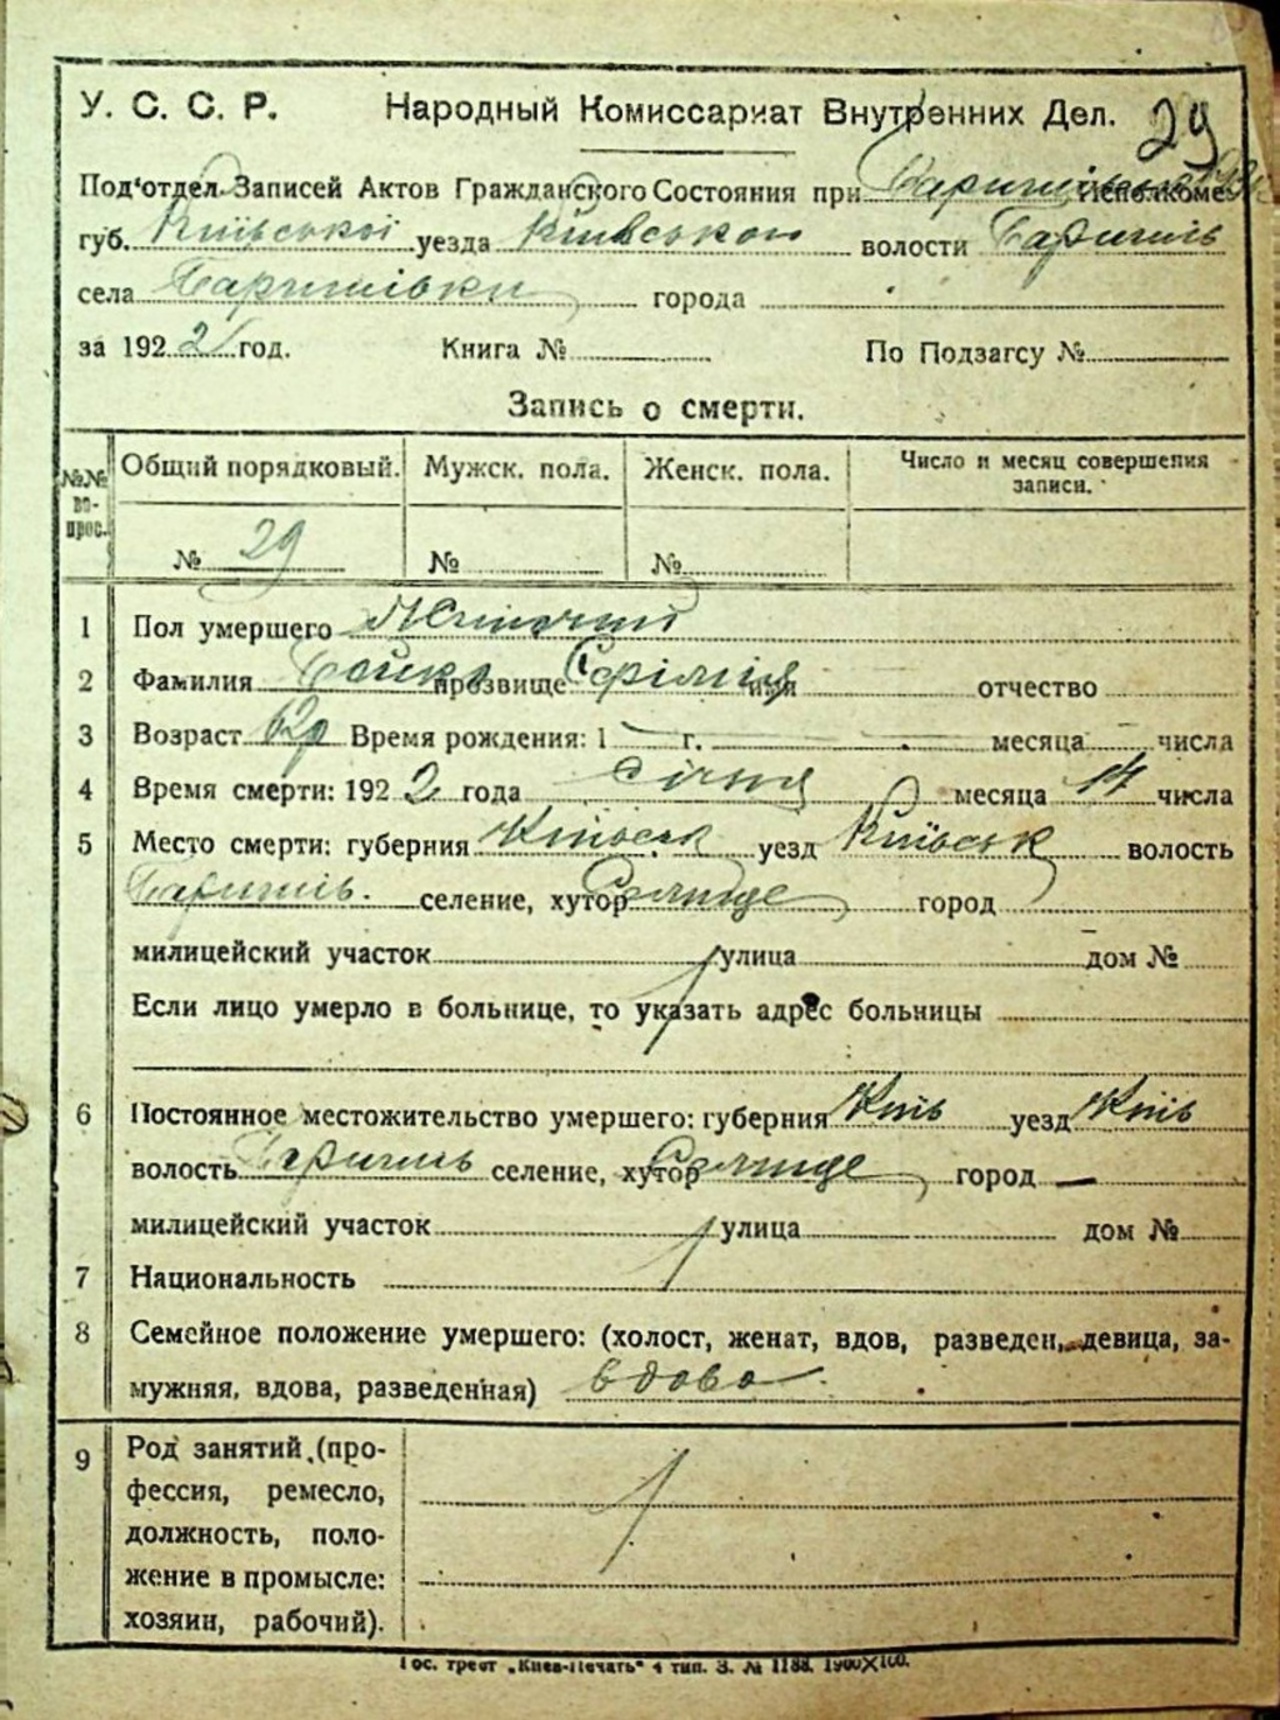 У. С. С. Р. Народный Комиссариат Внутренних Дел. 29
Под'отдел Записей Актов Гражданского Состояния при Исполкоме
губ. Київської уезда Київського волости Баришпіль
села Баришівки города
за 1922 год. Книга № По Подзагсу №
Запись о смерти.
№№ во-прос. Общий порядковый. Мужск. пола. Женск. пола. Число и месяц совершения записи.
№ 29 № №
1 Пол умершего Жіночий
2 Фамилия Бойко прозвище Софілія имя отчество
3 Возраст 62 р Время рождения: 1 г. месяца числа
4 Время смерти: 1922 года січня месяца 14 числа
5 Место смерти: губерния Київськ уезд Київськ волость
Баришпіль. селение, хутор Селище город
милицейский участок улица дом №
Если лицо умерло в больнице, то указать адрес больницы
6 Постоянное местожительство умершего: губерния Київ уезд Київ
волость Баришпіль селение, хутор Селище город —
милицейский участок улица дом №
7 Национальность
8 Семейное положение умершего: (холост, женат, вдов, разведен, девица, за-
мужняя, вдова, разведенная) вдова
9 Род занятий (про-
фессия, ремесло,
должность, поло-
жение в промысле:
хозяин, рабочий).
Гос. трест „Киев-Печать“ 4 тип. З. № 1188. 1900×100.